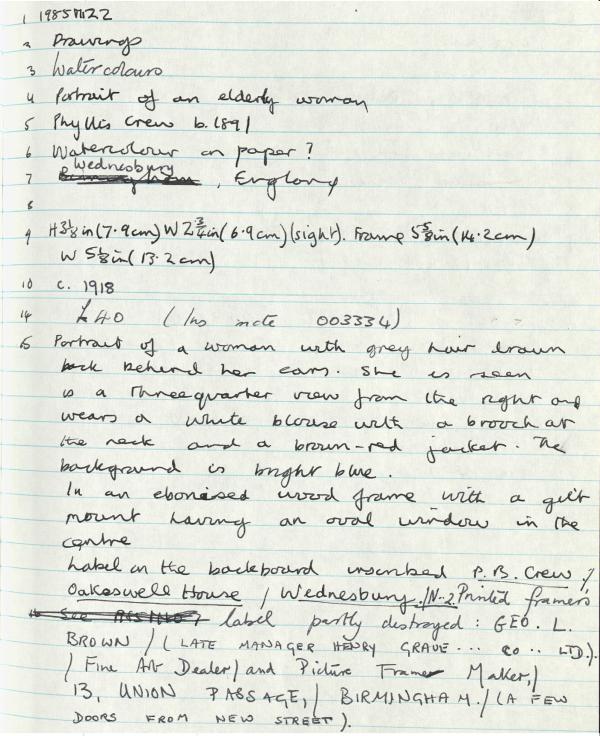 1 1985M22
2 Drawings
3 Watercolours
4 Portrait of an elderly woman
5 Phyllis Crew b. 1891
6 Watercolour on paper?
Wednesbury
7 Birmingham, England
8
9 H 3 1/8 in (7.9cm) W 2 3/4 in (6.9cm) (sight). Frame 5 5/8 in (14.2cm)
W 5 1/8 in (13.2cm)
10 c. 1918
14 £40 (Ins note 003334)
15 Portrait of a woman with grey hair drawn
back behind her ears. She is seen
is a threequarter view from the right and
wears a white blouse with a brooch at
the neck and a brown-red jacket. The
background is bright blue.
In an ebonised wood frame with a gilt
mount having an oval window in the
centre
Label on the backboard inscribed P.B. Crew /
Oakeswell House / Wednesbury. / N-2 Printed framers
label partly destroyed: GEO. L.
BROWN / (LATE MANAGER HENRY GRAVE... CO.. LTD.).
/ Fine Art Dealer / and Picture Frame Maker, /
13, UNION PASSAGE, / BIRMINGHAM. / (A FEW
DOORS FROM NEW STREET).